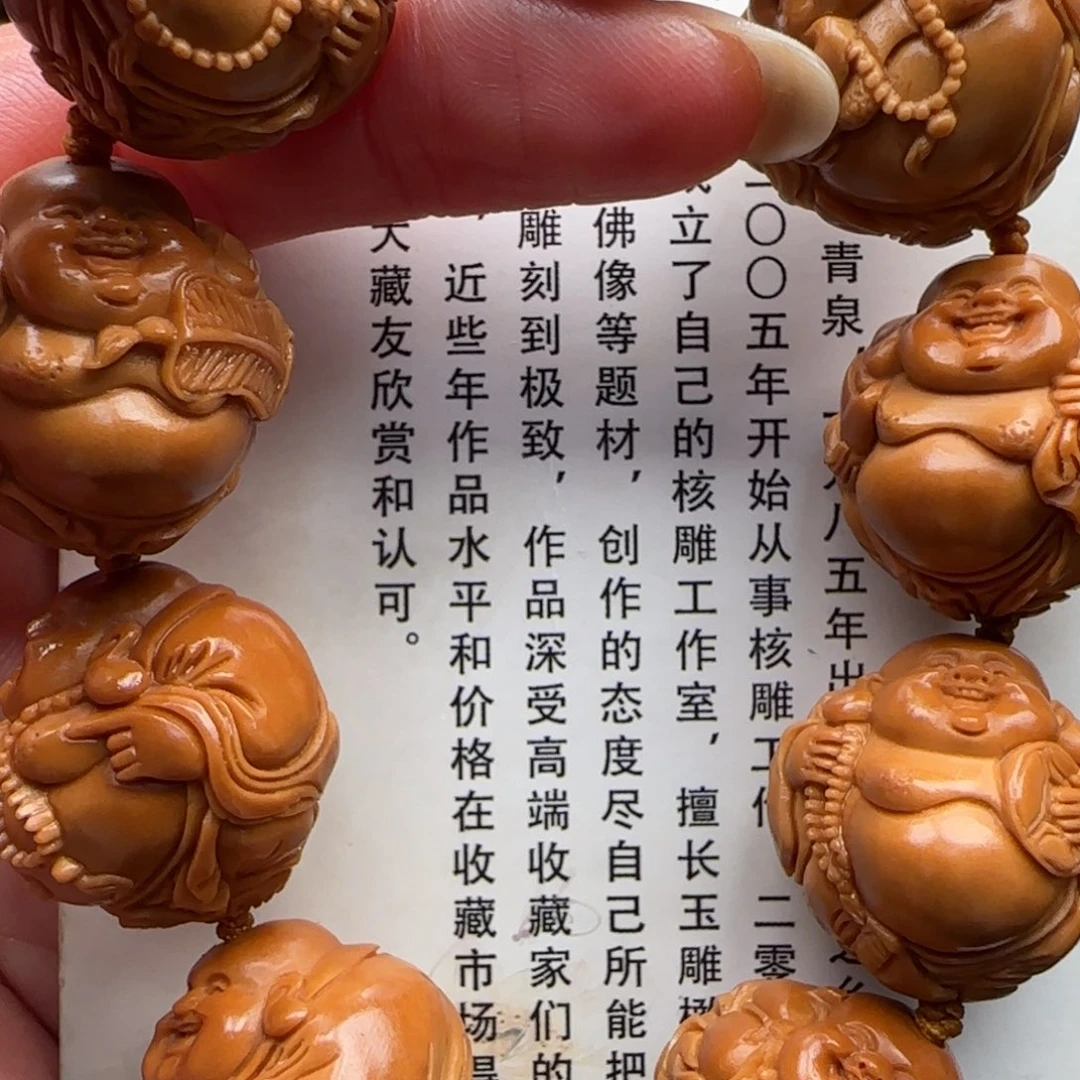 青泉，八五年出
〇〇五年开始从事核雕工作 二零
立了自己的核雕工作室，擅长玉雕橄
佛像等题材，创作的态度尽自己所能把
雕刻到极致，作品深受高端收藏家们的
，近些年作品水平和价格在收藏市场得
大藏友欣赏和认可。